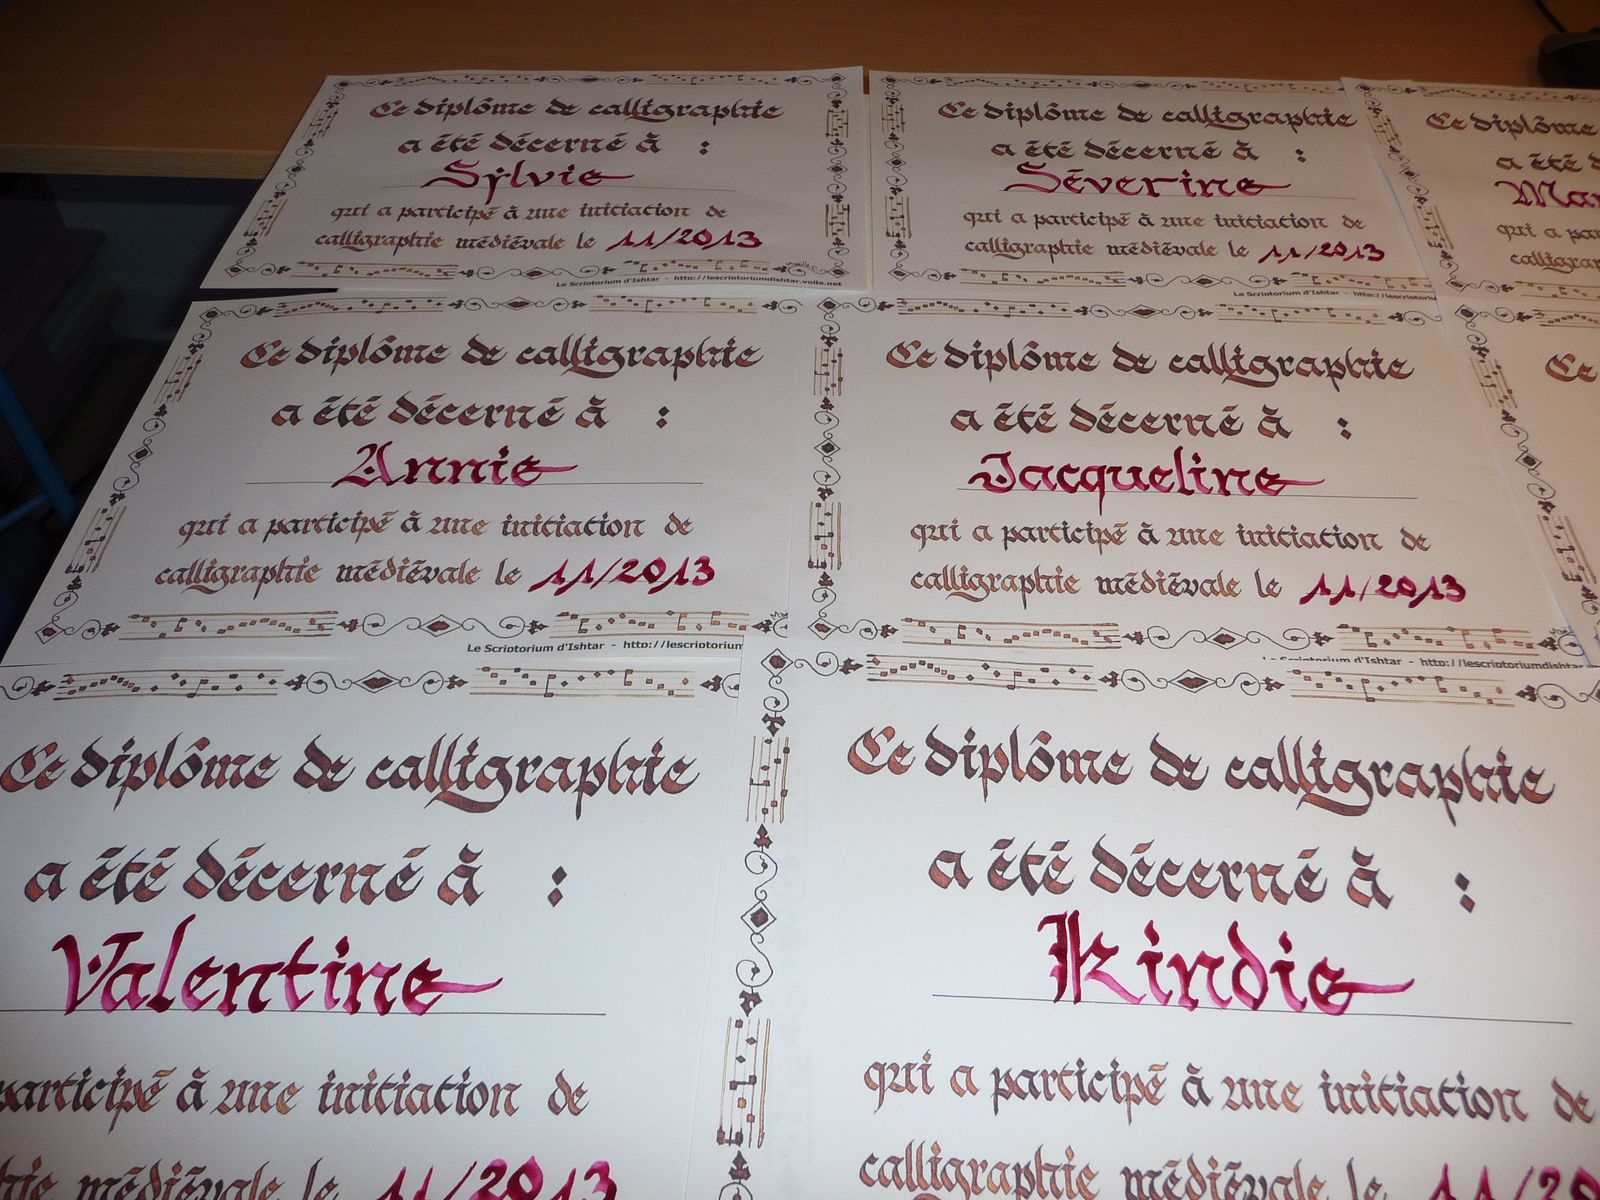 Ce diplôme de calligraphie
a été décerné à :
Sylvie
qui a participé à une initiation de
calligraphie médiévale le 11/2013
Le Scriptorium d'Ishtar - http://lescriptoriumdishtar.voila.net
Ce diplôme de calligraphie
a été décerné à :
Séverine
qui a participé à une initiation de
calligraphie médiévale le 11/2013
Le Scriptorium d'Ishtar - http://lescriptorium
Ce diplôme
a été
qui a
Ce diplôme de calligraphie
a été décerné à :
Annie
qui a participé à une initiation de
calligraphie médiévale le 11/2013
Le Scriptorium d'Ishtar - http://lescriptorium
Ce diplôme de calligraphie
a été décerné à :
Jacqueline
qui a participé à une initiation de
calligraphie médiévale le 11/2013
Le Scriptorium d'Ishtar - http://lescriptoriumdishtar
Ce
Ce diplôme de calligraphie
a été décerné à :
Valentine
participé à une initiation de
médiévale le 11/2013
Ce diplôme de calligraphie
a été décerné à :
Kindie
qui a participé à une initiation de
calligraphie médiévale le 11/20